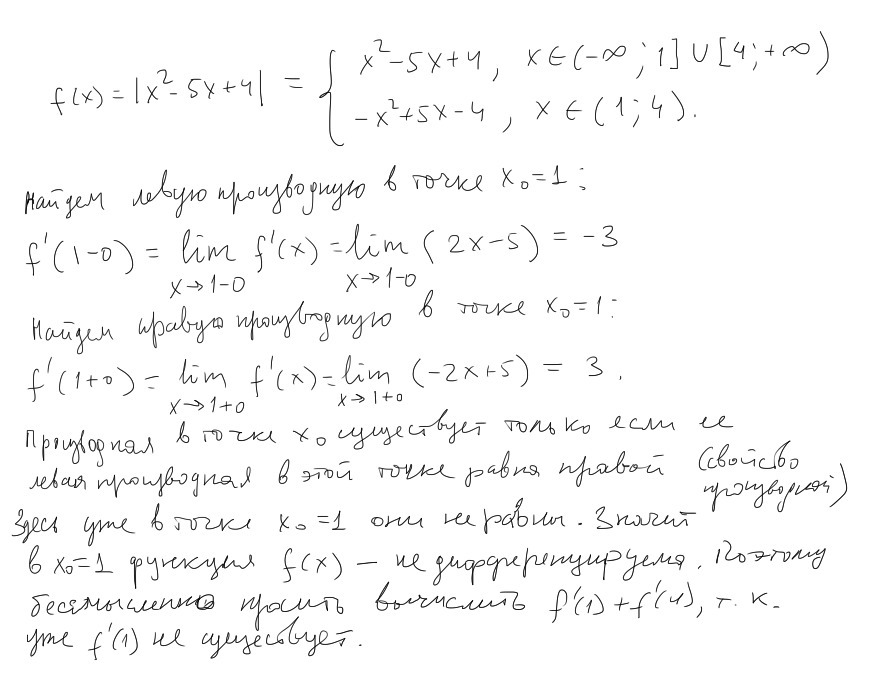 f(x) = |x² - 5x + 4| = { x² - 5x + 4, x ∈ (-∞; 1] ∪ [4; +∞)
-x² + 5x - 4, x ∈ (1; 4).
Найдем левую производную в точке x₀ = 1:
f'(1-0) = lim f'(x) = lim (2x-5) = -3
x→1-0 x→1-0
Найдем правую производную в точке x₀ = 1:
f'(1+0) = lim f'(x) = lim (-2x+5) = 3.
x→1+0 x→1+0
Производная в точке x₀ существует только если ее
левая производная в этой точке равна правой (свойство
производной)
Здесь уже в точке x₀ = 1 они не равны. Значит
в x₀ = 1 функция f(x) — не дифференцируема. Поэтому
бессмысленно просить вычислить f'(1) + f'(4), т. к.
уже f'(1) не существует.